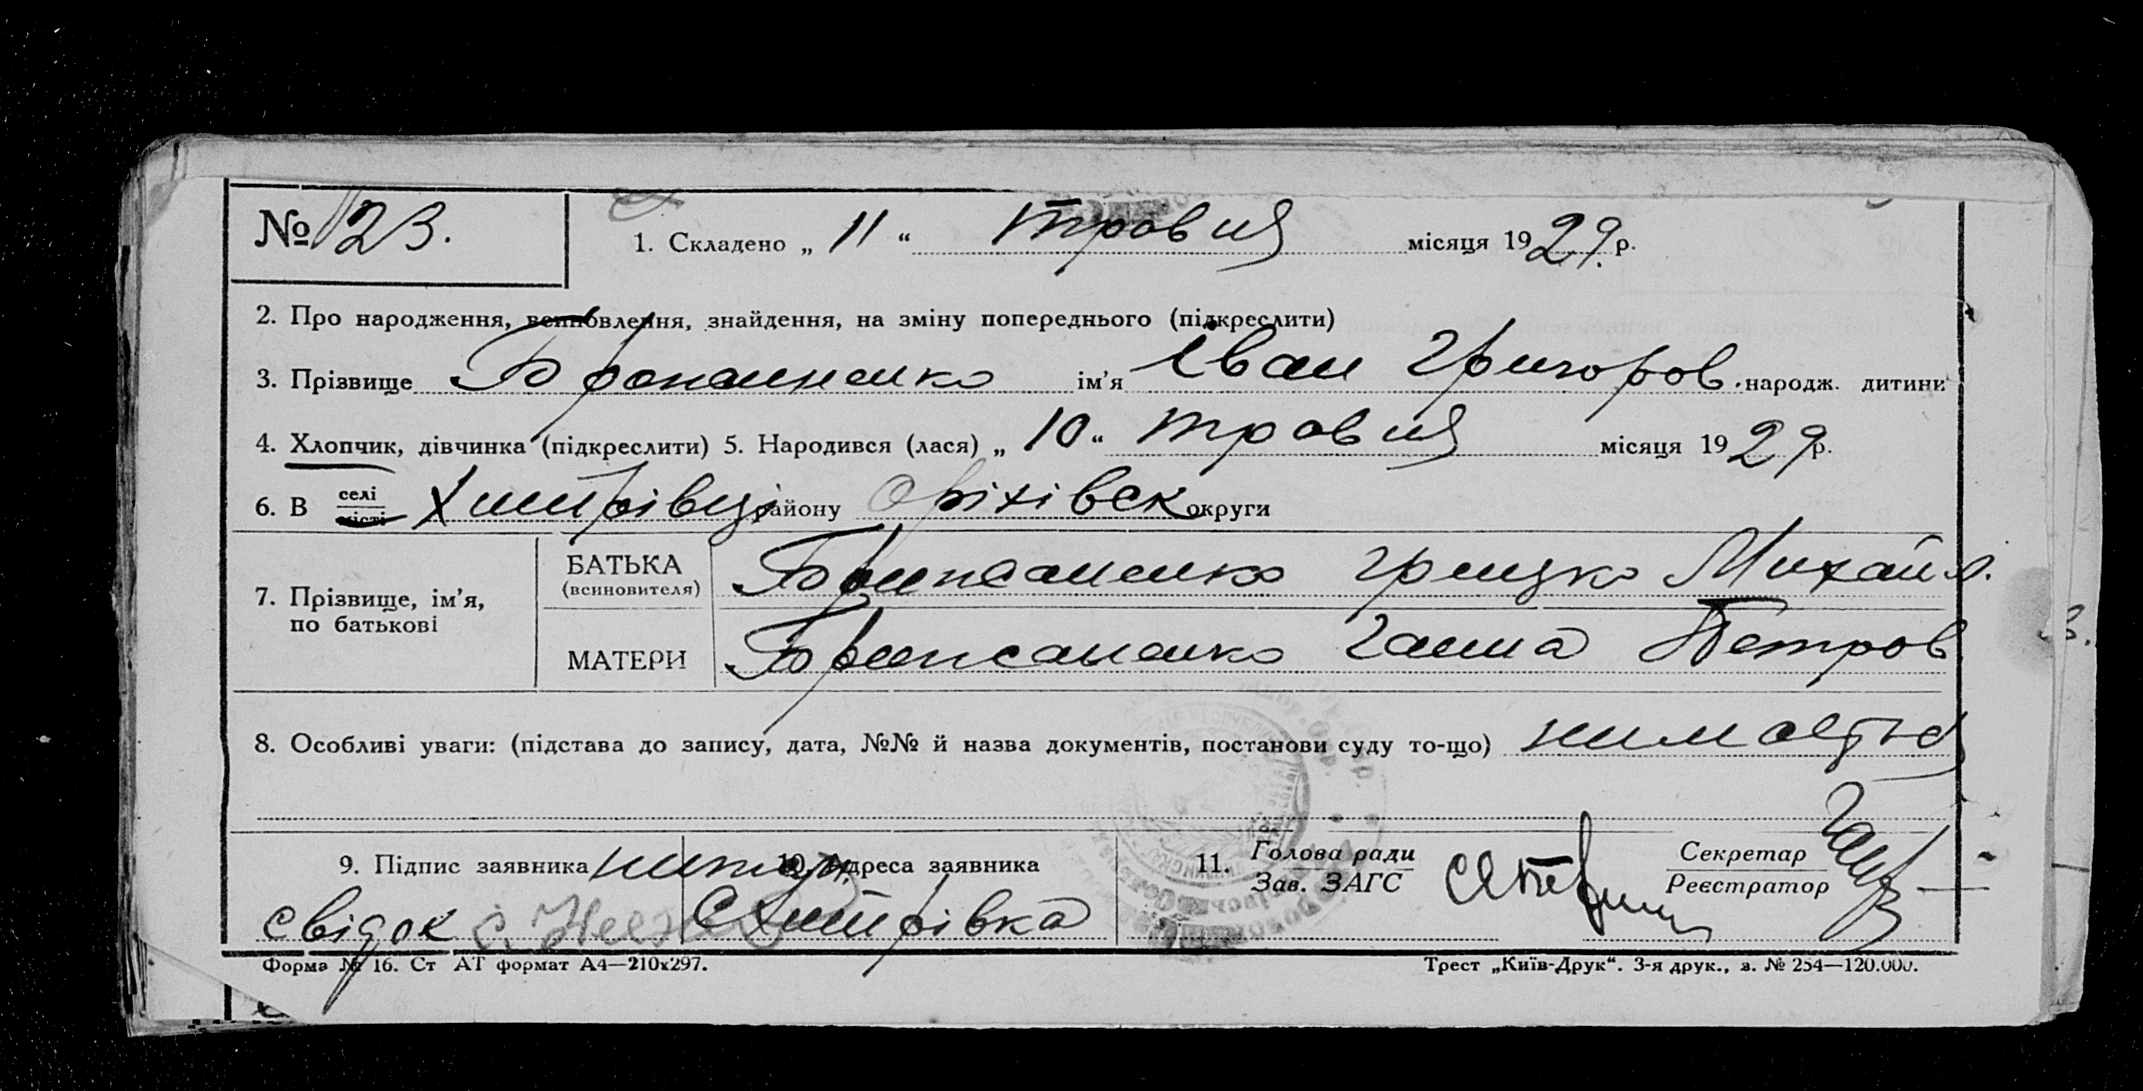 № 23. 1. Складено „ 11 “ травня місяця 1929. р.
2. Про народження, всиновлення, знайдення, на зміну попереднього (підкреслити)
3. Прізвище ім’я Іван Григоров. народж. дитини
4. Хлопчик, дівчинка (підкреслити) 5. Народився (лася) „ 10 “ травня місяця 1929 р.
6. В селі місті Хитрівці району Оріхівск округи
7. Прізвище, ім’я, по батькові
БАТЬКА (всиновителя) Грицко Михайл.
МАТЕРИ Ганна Петров
8. Особливі уваги: (підстава до запису, дата, №№ й назва документів, постанови суду то-що)
9. Підпис заявника 10. Адреса заявника 11. Голова ради Секретар
Зав. ЗАГС Реєстратор
свідок с. Хитрівка
Форма № 16. Ст АТ формат А4—210х297. Трест „Київ-Друк“. 3-я друк., з. № 254—120.000.